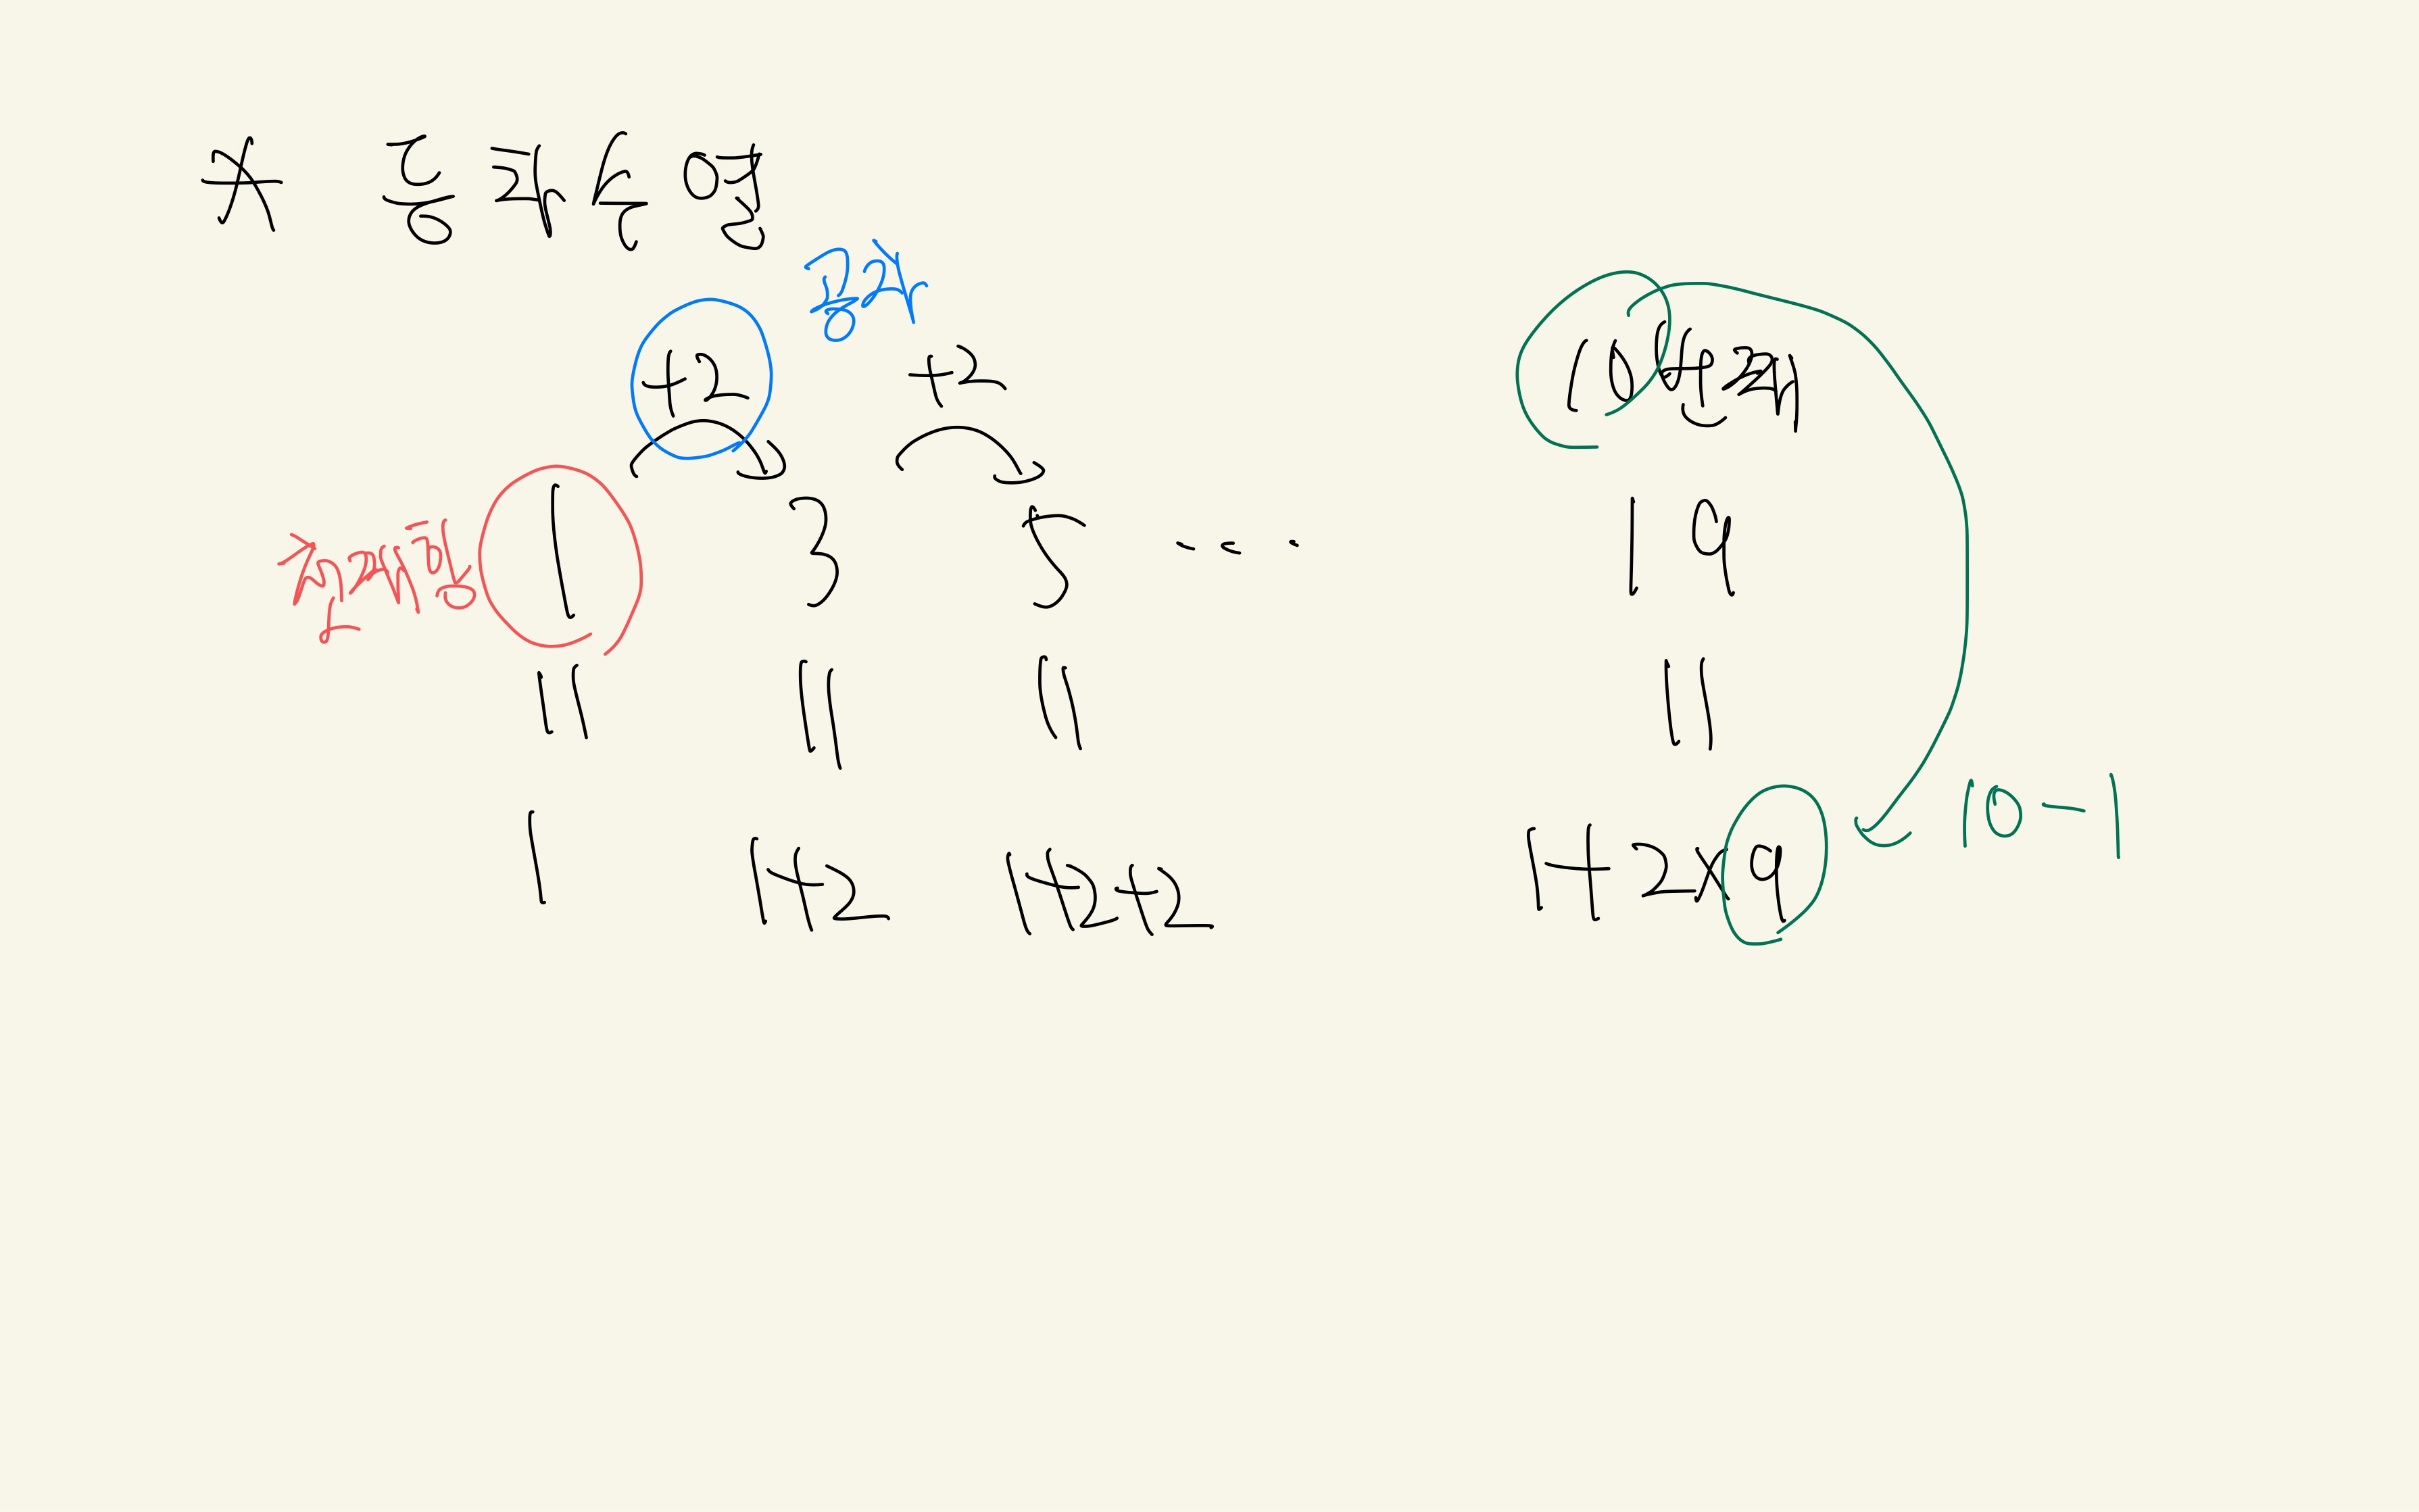 * 등차수열
공차
+2 +2 10번째
첫번째항 1 3 5 ... 19
|| || || ||
1 1+2 1+2+2 1+2×9 10-1